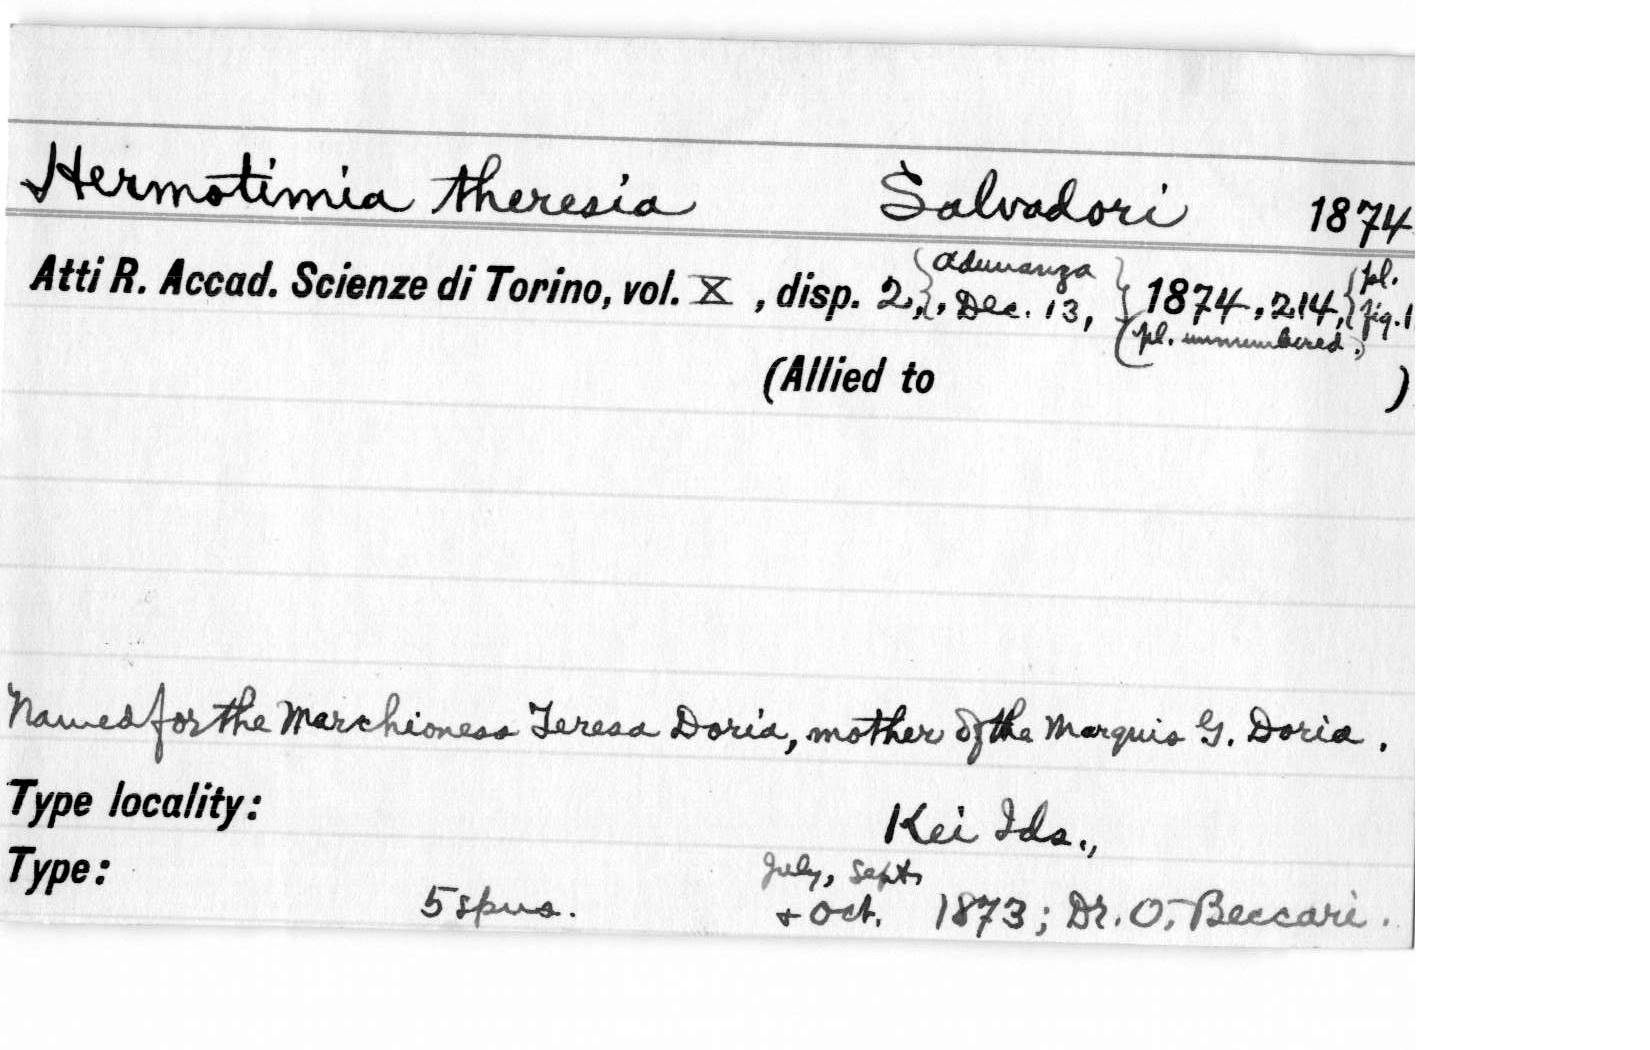 Hermotimia theresia Salvadori 1874
Atti R. Accad. Scienze di Torino, vol. X , disp. 2, { , adunanza Dec. 13, } 1874, 214, { pl. fig. 1
( pl. unnumbered. )
(Allied to )
Named for the Marchioness Teresa Doria, mother of the Marquis G. Doria.
Type locality: Kei Ids.,
Type: 5 spns. July, Sept. + Oct. 1873; Dr. O. Beccari.